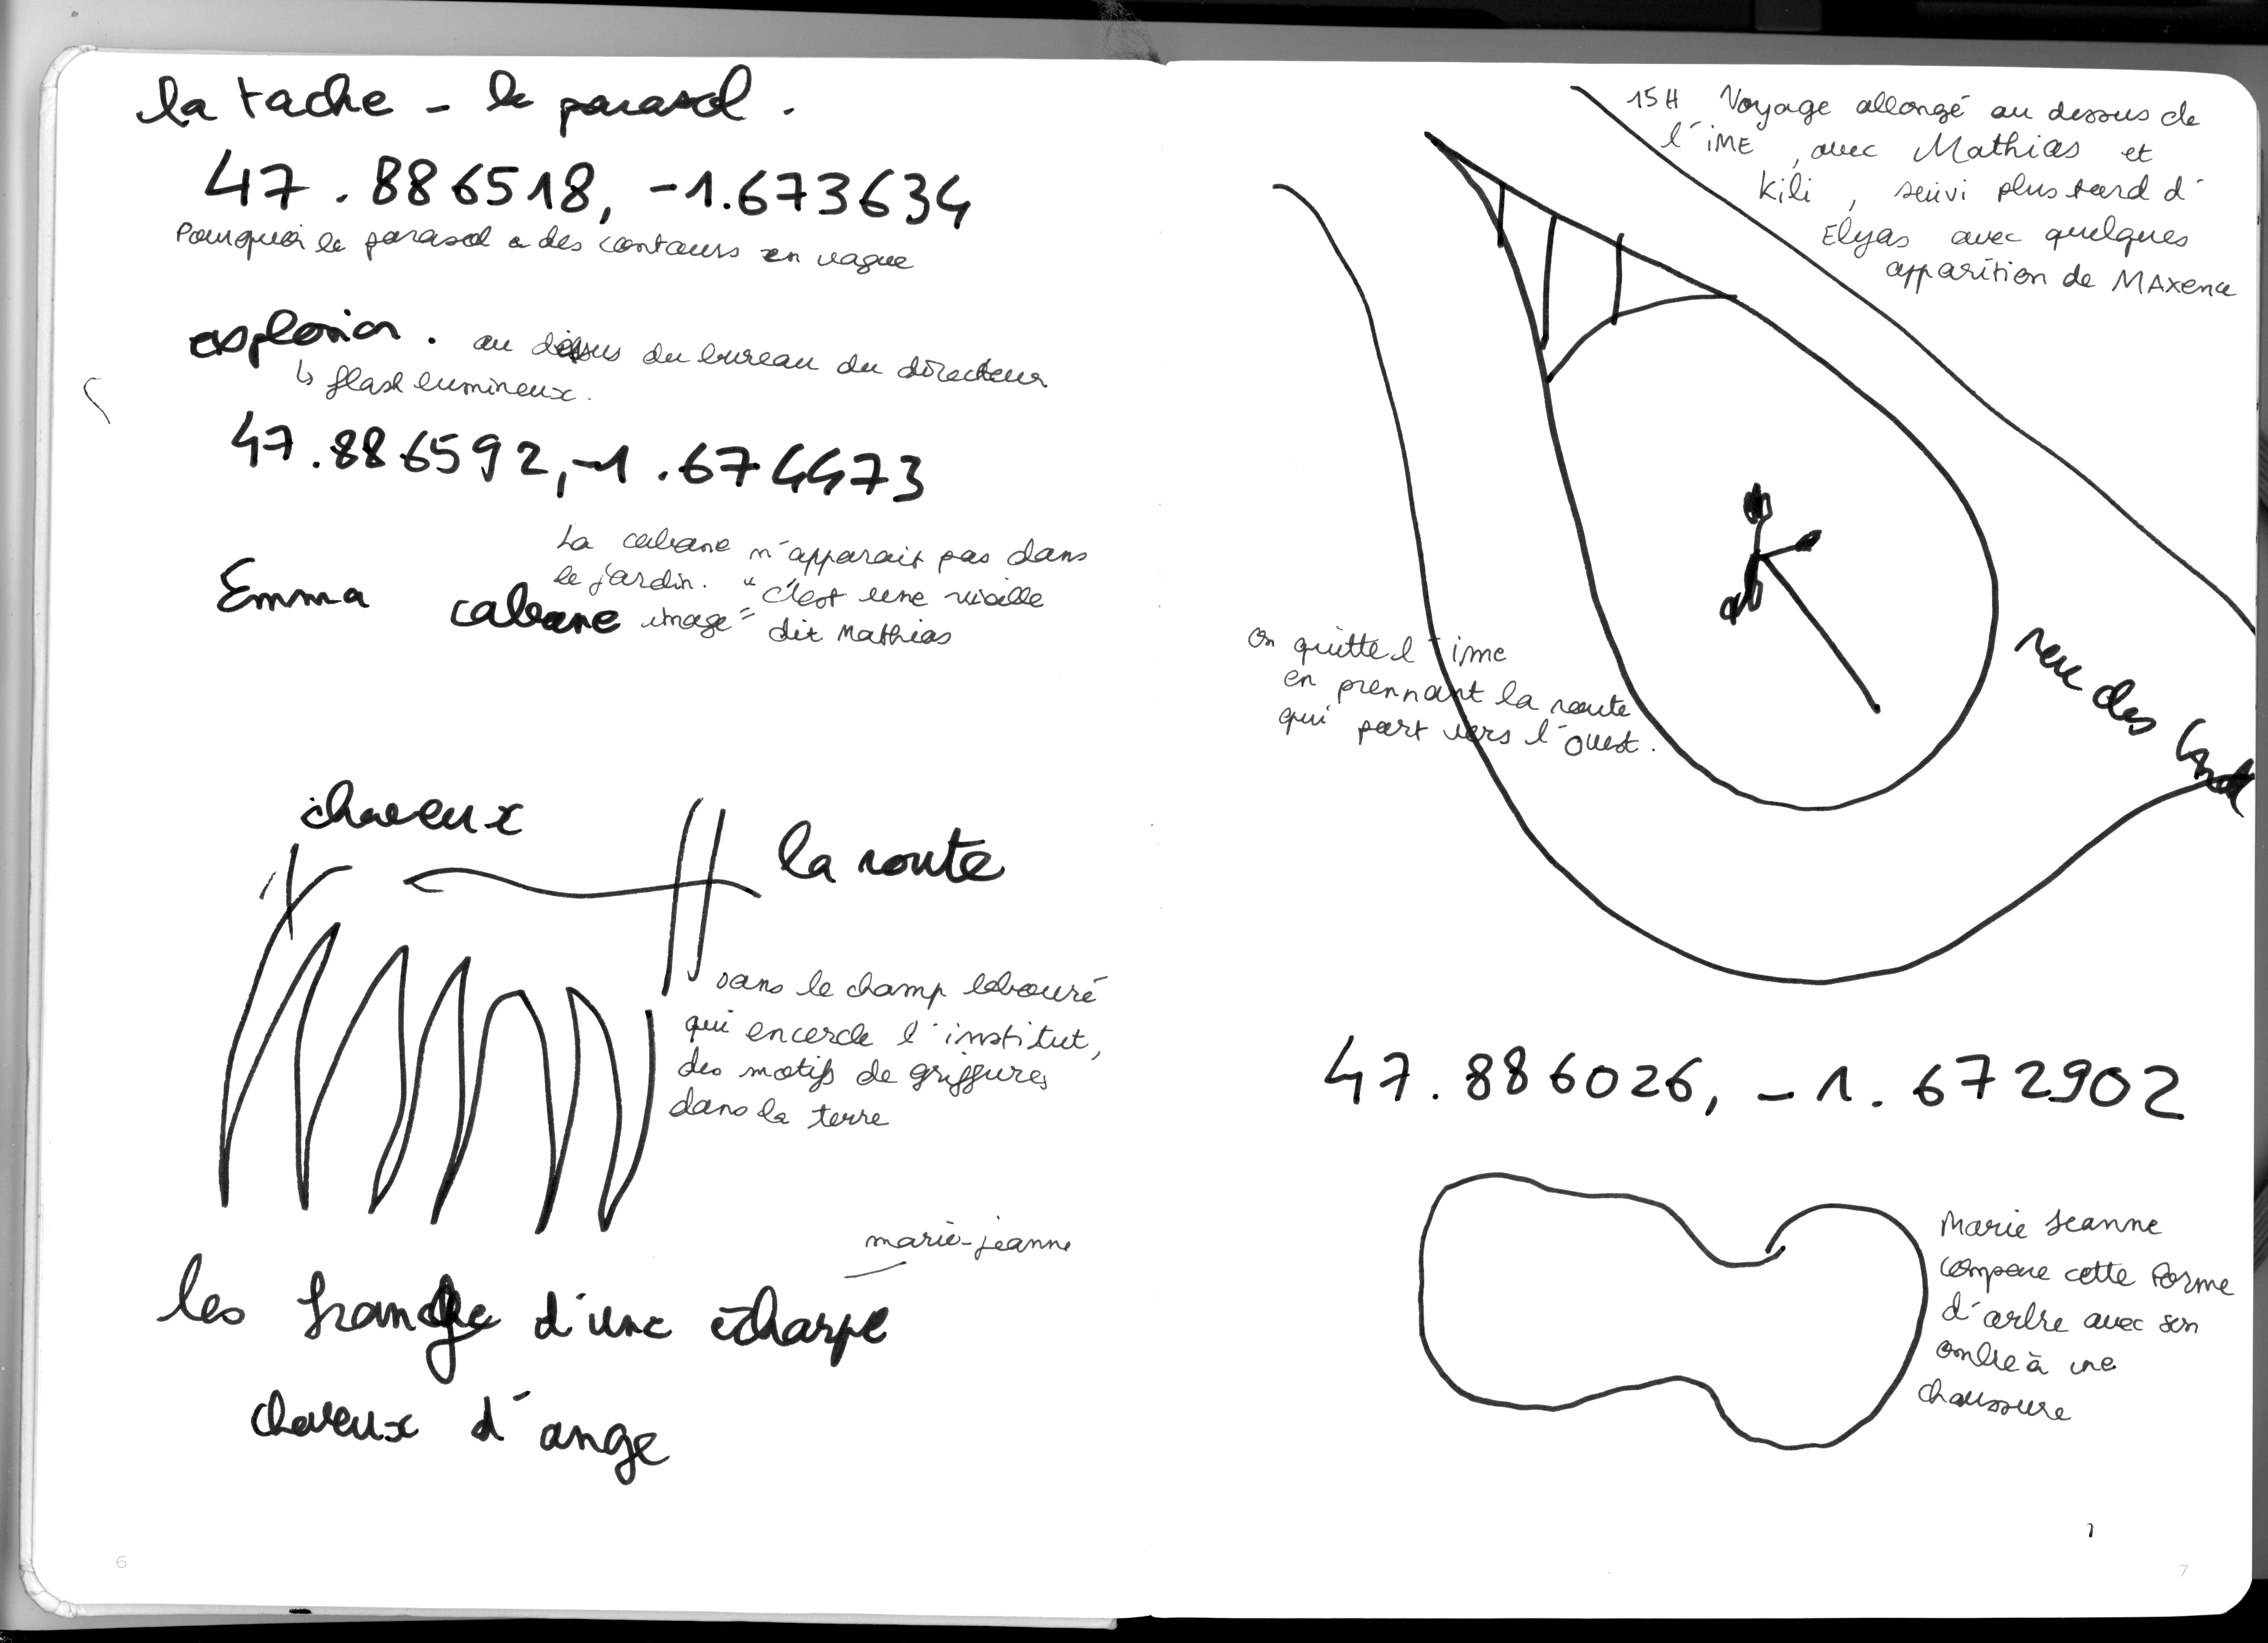 la tache - le parasol.
47.886518, -1.673634
Pourquoi le parasol a des contours en vague
explosion. au dessus du bureau du directeur
↳ flash lumineux.
47.886592, -1.674473
La cabane n'apparait pas dans
le jardin. "c'est une vieille
Emma cabane image" dit Mathias
cheveux
la route
Dans le champ labouré
qui encercle l'institut,
des motifs de griffures
dans la terre
marie-jeanne
les frange d'une écharpe
cheveux d'ange
6
15H Voyage allongé au dessus de
l'iME, avec Mathias et
Kili, suivi plus tard d'
Elyas avec quelques
apparition de MAxence
On quitte l'ime
en prennant la route
qui part vers l'ouest.
rue des
47.886026, -1.672902
Marie Jeanne
compare cette forme
d'arbre avec son
ombre à une
chaussure
7